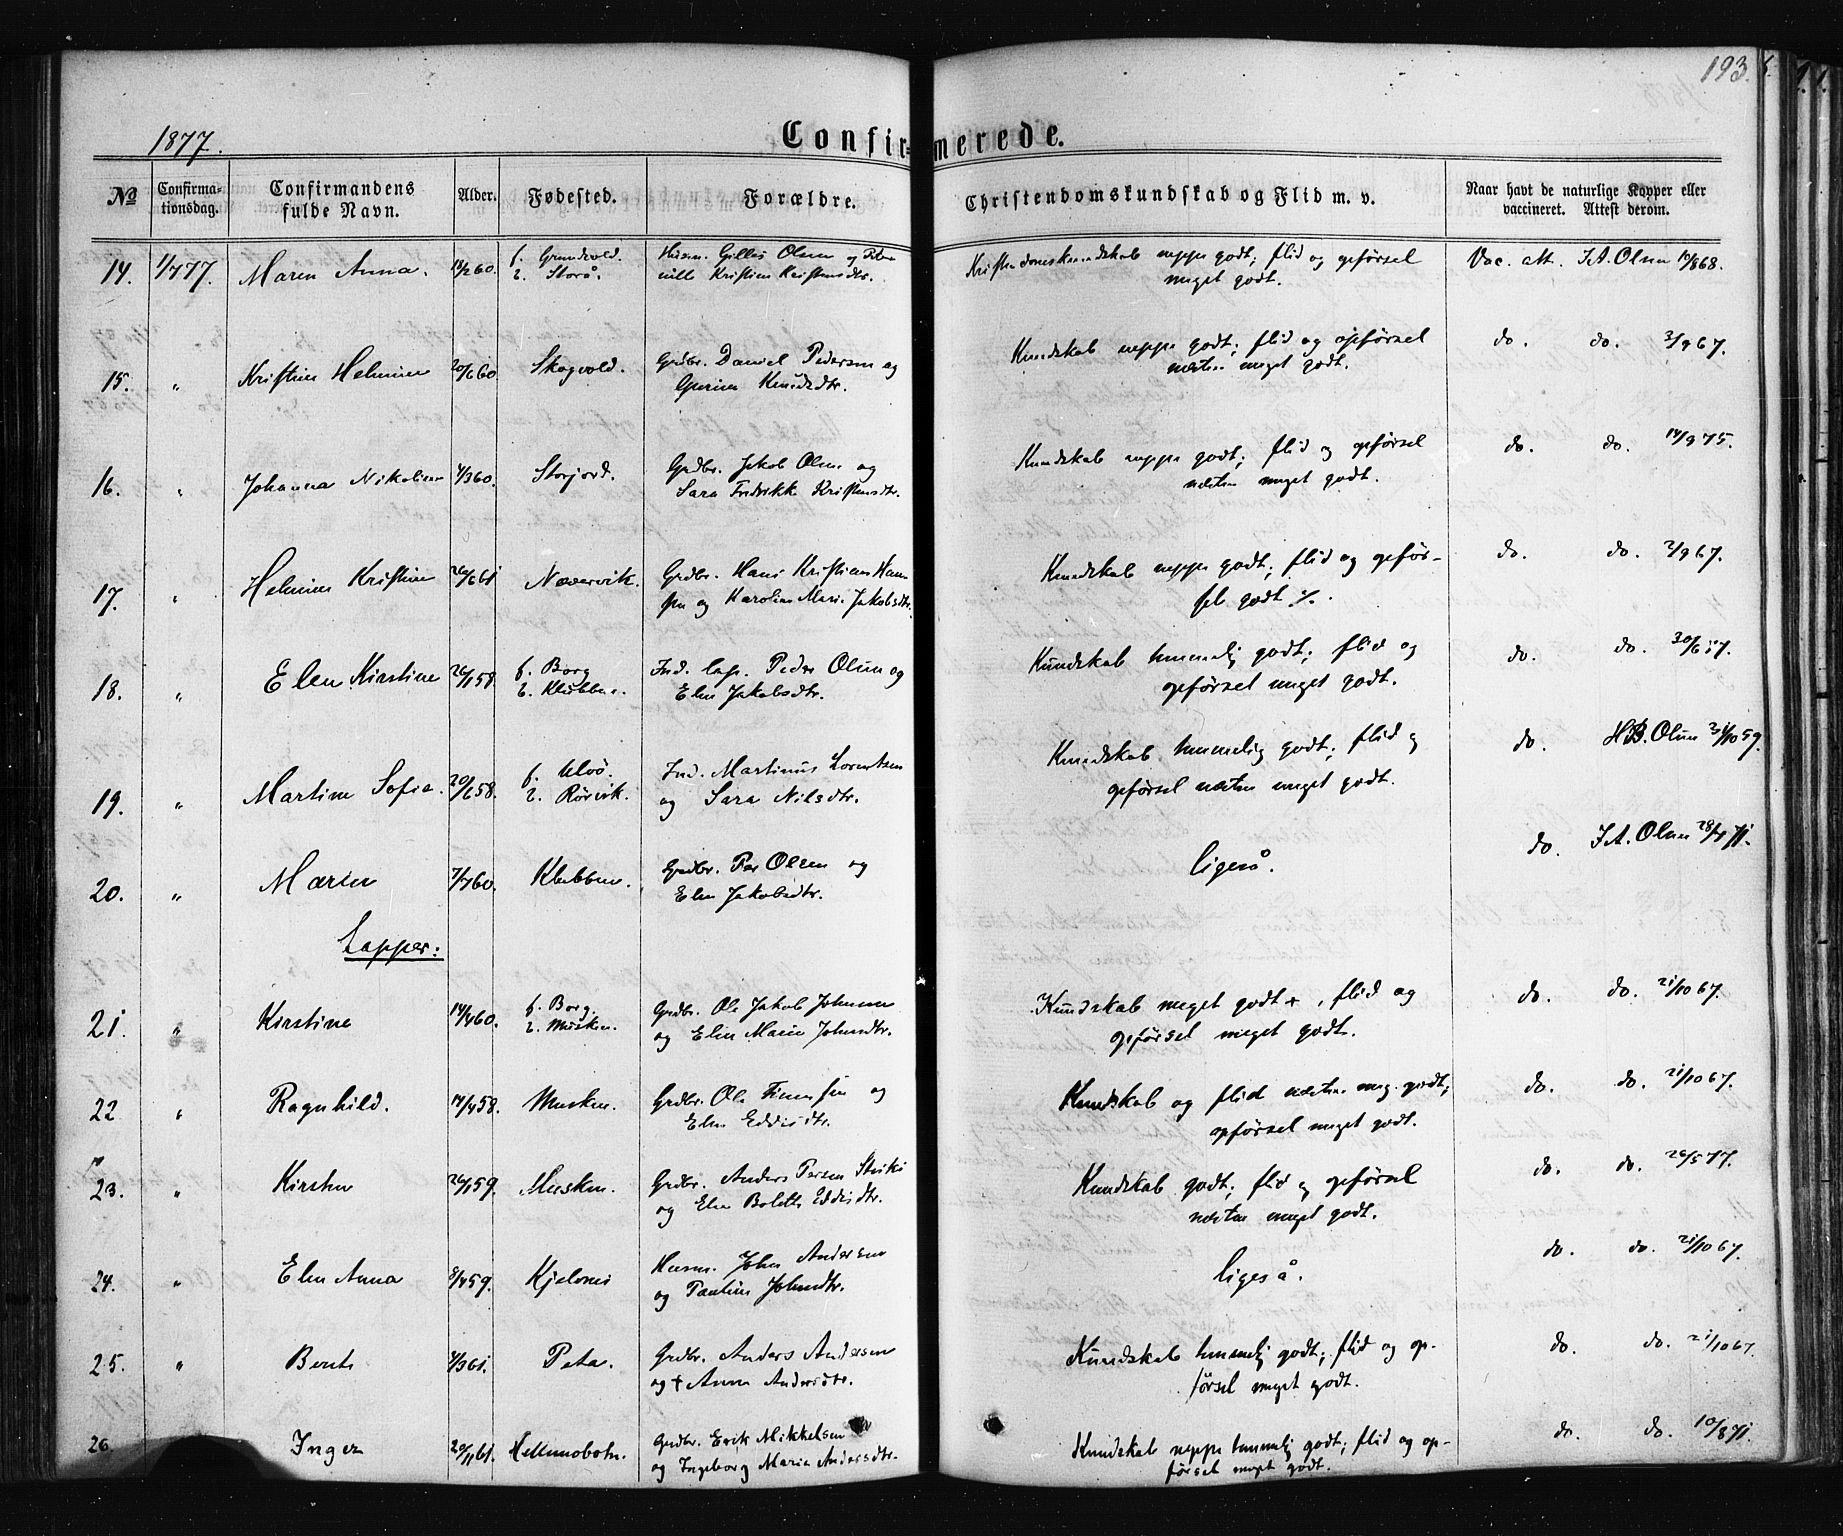 193.
1877.
Confirmerede.
No
Confirmationsdag.
Confirmandens fulde Navn.
Alder.
Fødested.
Forældre.
Christendomskundskab og Flid m. v.
Naar havt de naturlige Kopper eller vaccineret. Attest derom.
14. 1/7 77. Maren Anna. f. Grundvold. Husm. Gilles Olsen og Kristendomskundskab neppe godt; flid og opførsel Vac. att. J.A. Olsen 10/8 68.
2. Storå. Kristensdtr. meget godt.
15. " Kristine Helmine 20/6 60. Skogvold. Grdbr. Daniel Pedersen og Kundskab neppe godt; flid og opførsel do. do. 3/9 67.
Knudsdtr. næsten meget godt.
16. " Johanna Nikoline 4/3 60. Storjord. Grdbr. Jakob Olsen og Kundskab neppe godt; flid og opførsel do. do. 14/9 75.
Sara Fredrikke Kristensdtr. næsten meget godt.
17. " Helmine Kristine 26/6 61 Nævervik. Grdbr. Hans Kristian Han- Kundskab neppe godt; flid og opfør- do. do. 2/9 67.
sen og Karoline Marie Jakobsdtr. sel godt %.
18. " Elen Kirstine 26/1 58. f. Borg Ind. lap. Peder Olsen og Kundskab temmelig godt; flid og do. do.
2. Klubben. Elen Jakobsdtr. opførsel meget godt.
19. " Martine Sofie. 20/6 58. f. Ulvö. Ind. Martinus Lorentsen Kundskab temmelig godt; flid og do. H.B. Olsen 31/10 59.
2. Rørvik. og Sara Nilsdtr. opførsel næsten meget godt.
20. " Maren 7/7 60. Klubben. Grdbr. Per Olsen og ligeså. do. J.A. Olsen 28/7 71.
Elen Jakobsdtr.
Lapper:
21. " Kirstine 14/4 60. f. Borg Grdbr. Ole Jakob Johnsen Kundskab meget godt + , flid og do. do. 21/10 67.
2. Musken. og Elen Marie Johnsdtr. opførsel meget godt.
22 " Ragnhild. 14/4 58. Musken. Grdbr. Ole Finnsen og Kundskab og flid næsten meg. godt; do. do. 21/10 67.
Elen Eddisdtr. opførsel meget godt.
23. " Kirsten 26/1 59. Musken. Grdbr. Anders Persen Kundskab godt; flid og opførsel do. do. 26/5 77.
og Elen Bolette Eddisdtr. næsten meget godt.
24. " Elen Anna 8/4 59. Kjelvnes Husm. John Andersen ligeså. do. do. 21/10 67.
og Pauline Johnsdtr.
25. " Berit 4/3 61. Peta. Grdbr. Anders Andersen Kundskab temmelig godt; flid og op- do. do. 21/10 67.
og + Anna Andersdtr. førsel meget godt.
26. Inger 20/11 61. Hellmobotn. Grdbr. Erik Mikkelsen Kundskab neppe temmelig godt; flid og op- do. do. 10/8 71.
og Ingeborg Marie Andersdtr. førsel meget godt.